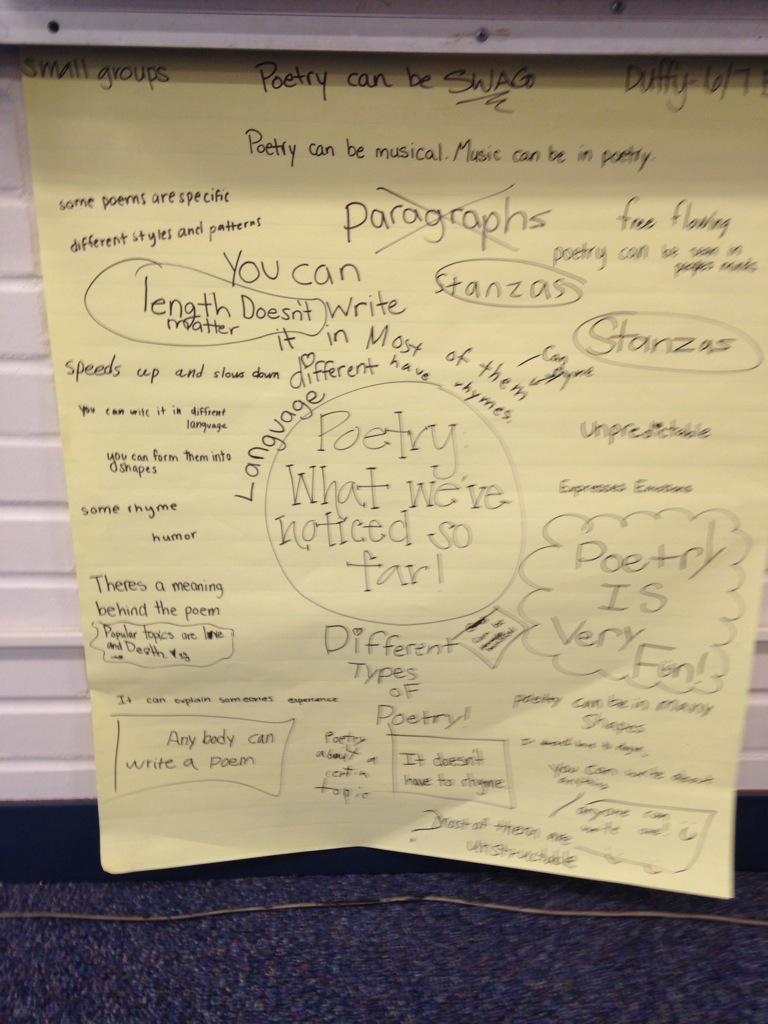 small groups
Poetry can be SWAG
Duffy-6/7
Poetry can be musical. Music can be in poetry.
some poems are specific
different styles and patterns
Paragraphs
free flowing
poetry can be seen in
peoples minds
You can
write
it in
different
Language
length Doesn't
matter
Stanzas
Stanzas
Most of them
have rhymes.
Can
rhyme
speeds up and slows down
You can write it in diffrent
language
you can form them into
shapes
some rhyme
humor
Poetry
What we've
noticed so
far!
Unpredictable
Expresses Emotions
Poetry
IS
Very
Fun!
Theres a meaning
behind the poem
Popular topics are love
and Death
Different
Types
of
Poetry!
It can explain someones experience
poetry can be in many
Shapes
Any body can
write a poem
Poetry
about a
topic
It doesn't
have to rhyme
You can write about
anything
anyone can
write one!
Most of them are
unstructable